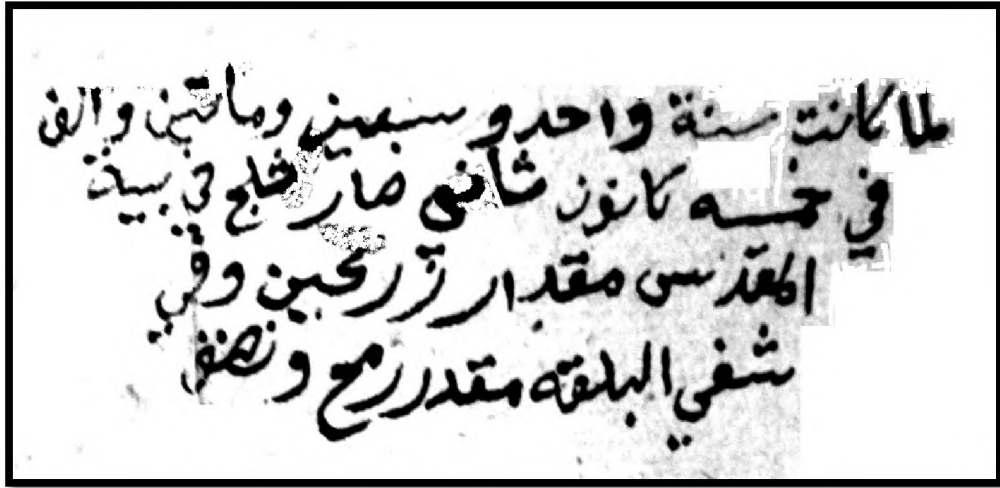 لما كانت سنة واحد و سبعين وماتين والف
في خمسه كانون شاني صار ثلج في بيت
المقدس مقدار رمحين وفي
شفي البلقه مقدر رمح ونصف